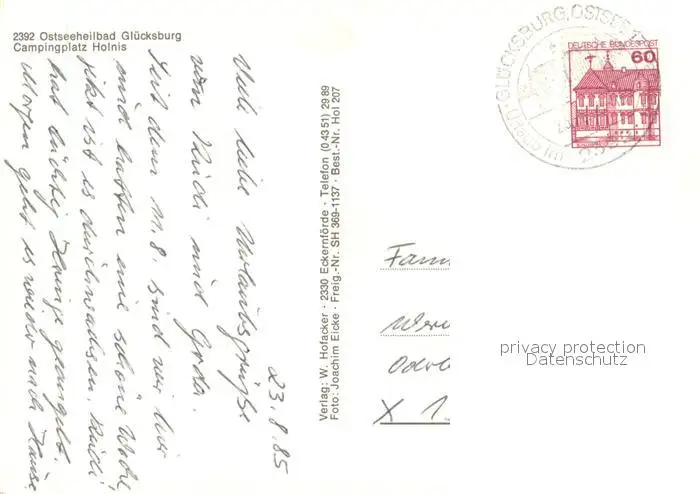 2392 Ostseeheilbad Glücksburg
Campingplatz Holnis
23.8.85
Viele liebe Urlaubsgrüße
von Rudi und Gerda.
Seit dem 11.8. sind wir hier
und hatten eine schöne Woche,
jetzt ist es durchwachsen. Rudi
hat tüchtig geangelt.
Morgen geht es wieder nach Hause
Verlag: W. Hofacker · 2330 Eckernförde · Telefon (0 43 51) 29 89
Foto: Joachim Eicke · Freig.-Nr. SH 369-1137 · Best.-Nr. Hol 207
GLÜCKSBURG, OSTSEE 1
DEUTSCHE BUNDESPOST
60
Fam
X 1
privacy protection
Datenschutz